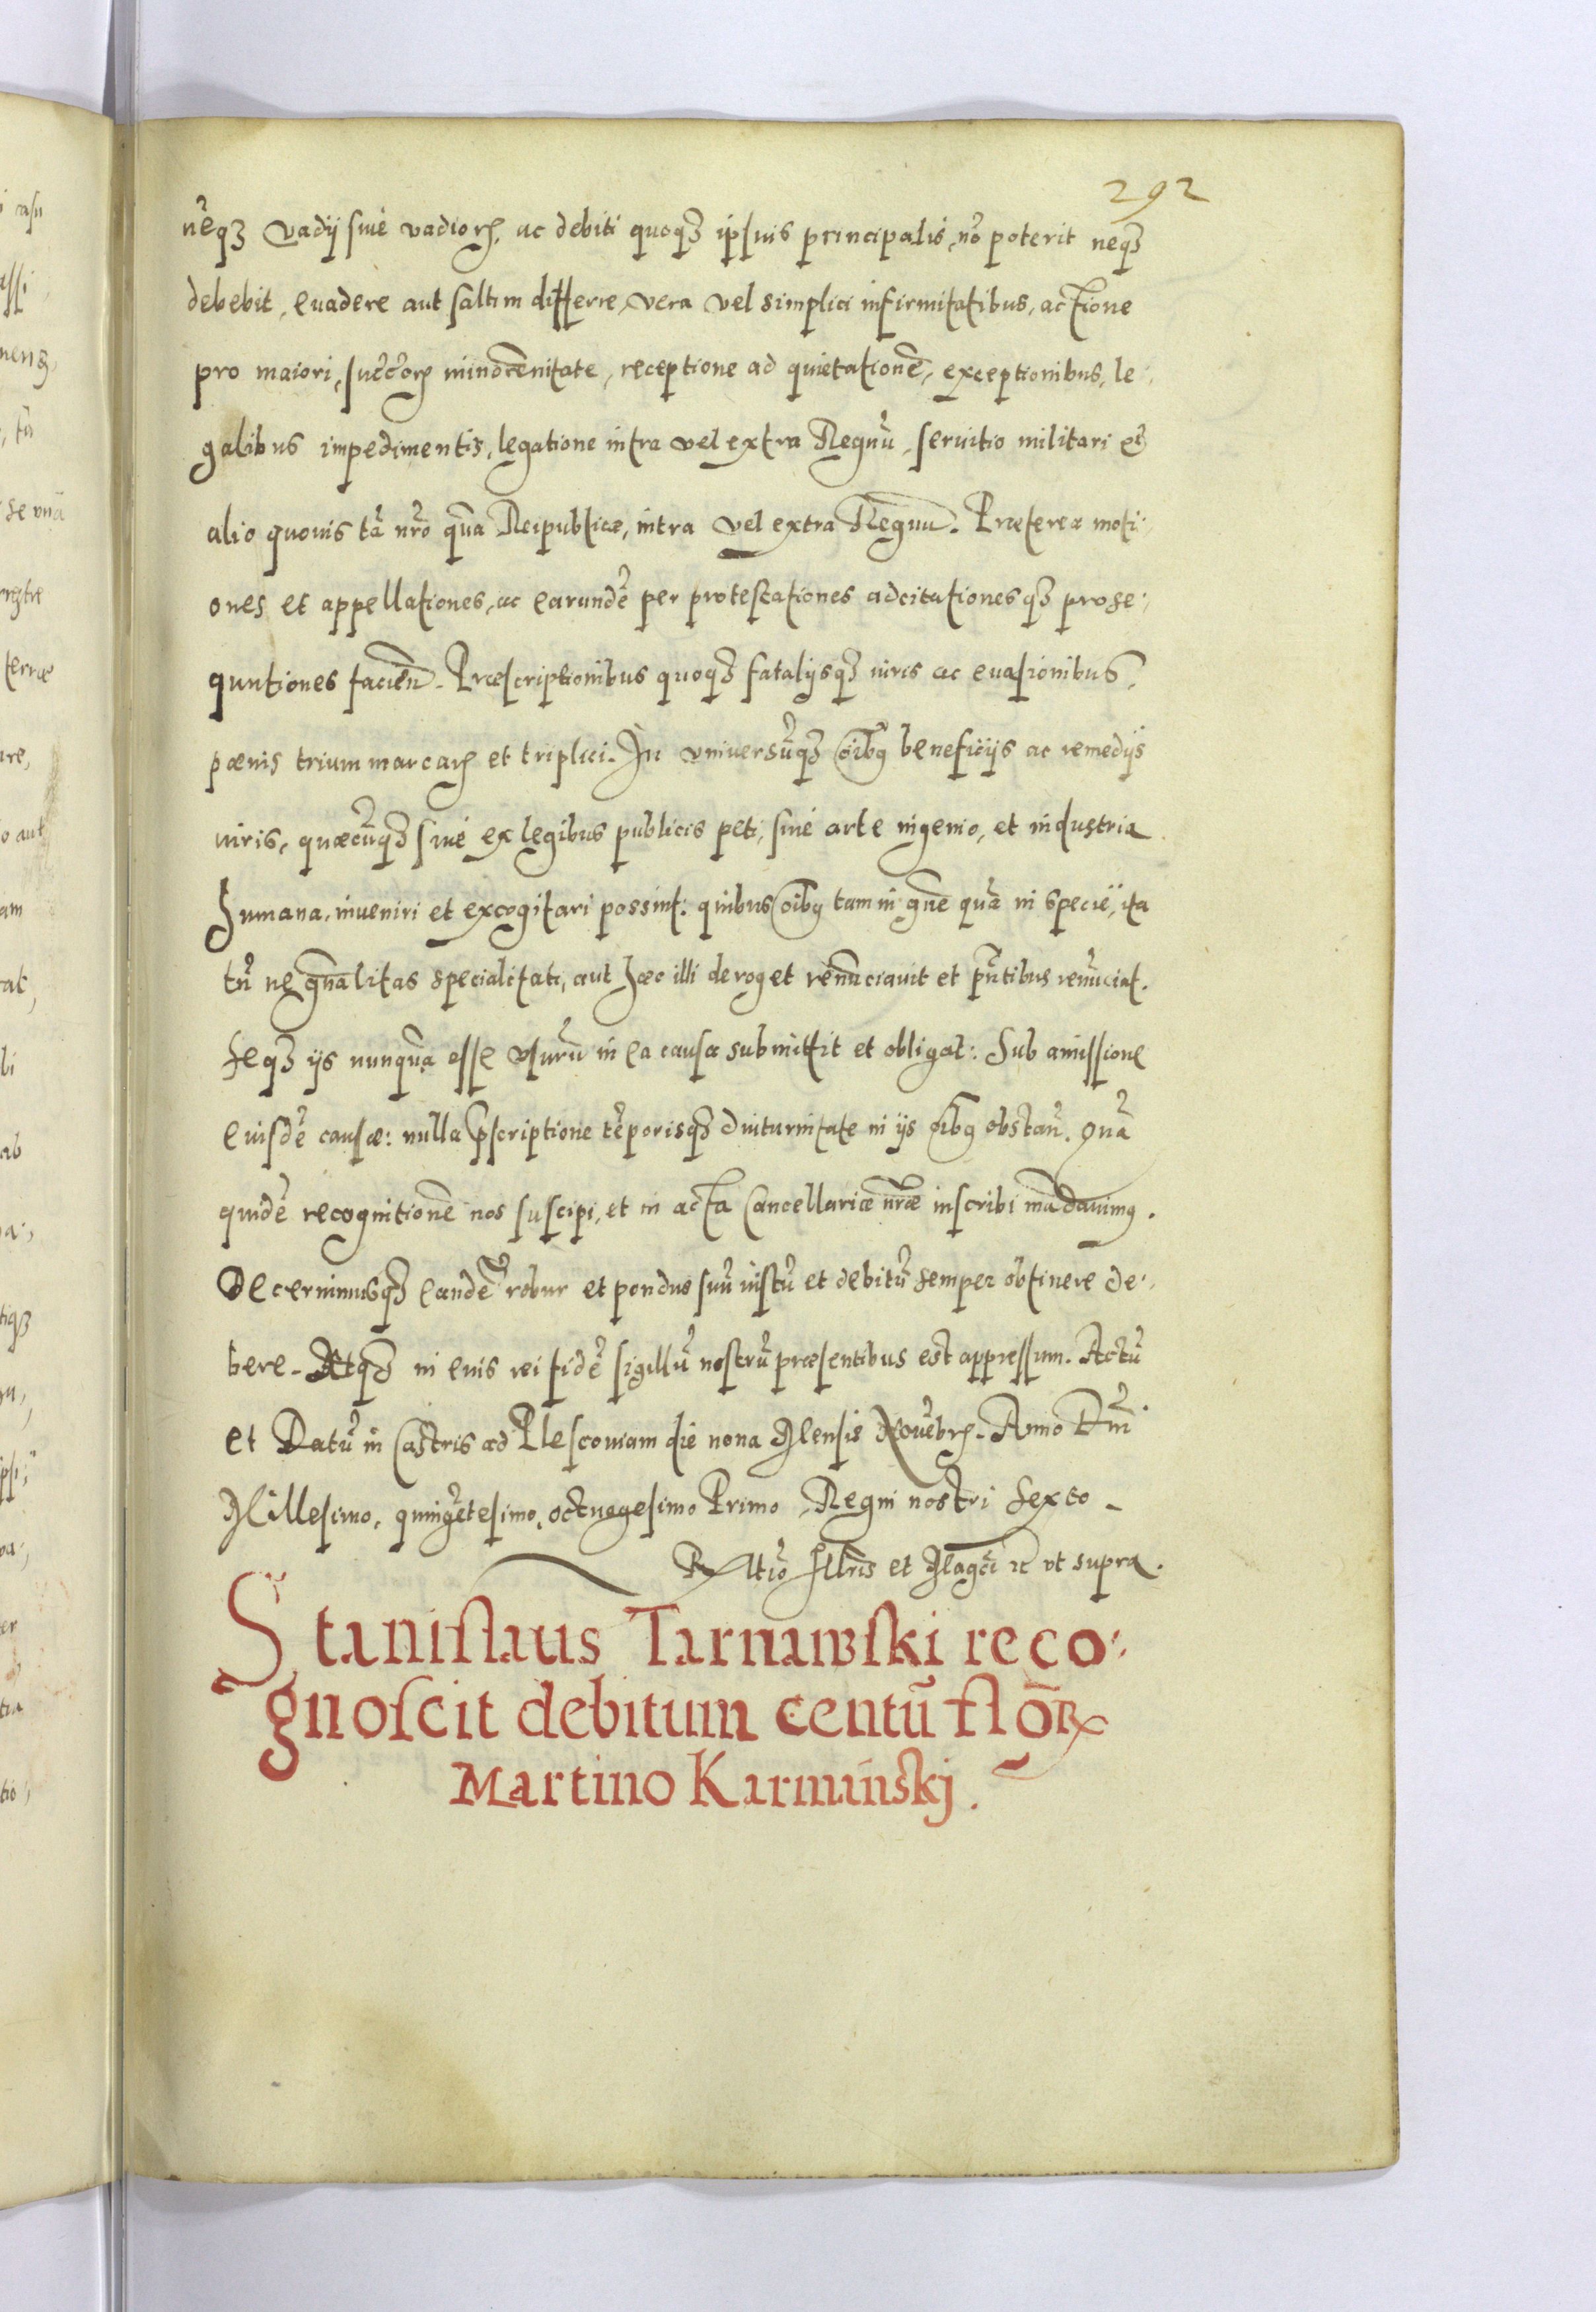 292
neqȝ vadij siue vadioꝝ, ac debiti quoqȝ ipsius principalis, nō poterit neqȝ
debebit, euadere aut saltim differre, vera vel simplici infirmitatibus, actione
pro maiori, succoꝝ minorēnitate, receptione ad quietationē, exceptionibus, le:
galibus impedimentis, legatione intra vel extra Regnū, seruitio militari et
alio quouis tā nr̄o quā Reipublicæ, intra vel extra Regnū. Præterea moti:
ones et appellationes, ac earundē per protestationes adcitationesqȝ prose:
quutiones faciēn. Præscriptionibus quoqȝ fatalijsqȝ iuris ac euasionibus,
pœnis trium marcaꝝ et triplici. In vniversūqȝ oībꝰ beneficijs ac remedijs
iuris, quæcūqȝ siue ex legibus publicis peti, siue arte ingenio, et industria
humana, inueniri et excogitari possint: quibus oībꝰ tam in gn̄e quā in specie, ita
tn̄ ne gn̄alitas specialitati, aut hæc illi deroget renūnciauit et pn̄tibus renūciat.
Seqȝ ijs nunquā esse vsurū in ea causa submittit et obligat: Sub amissione
euisdē causæ: nulla p̄scriptione tēporisqȝ diuturnitate in ijs oībꝰ obstan̄. Quā
quidē recognitionē nos suscipi, et in acta Cancellariæ nr̄æ inscribi mādauimꝰ.
Decernimusqȝ eandē robur et pondus suū iustū et debitū semper obtinere de:
bere. Atqȝ in euis rei fidē sigillū nostrū præsentibus est appressum. Actū
et Datū in Castris ad Plescouiam die nona Mensis Nouēbrꝭ. Anno Dn̄i
Millesimo, quingētesimo, octuagesimo Primo, Regni nostri Sexto.
Rltio Illris et Magci ꝛc vt supra.
Stanislaus Tarnawski reco:
gnoscit debitum centū floꝝ
Martino Karminski.